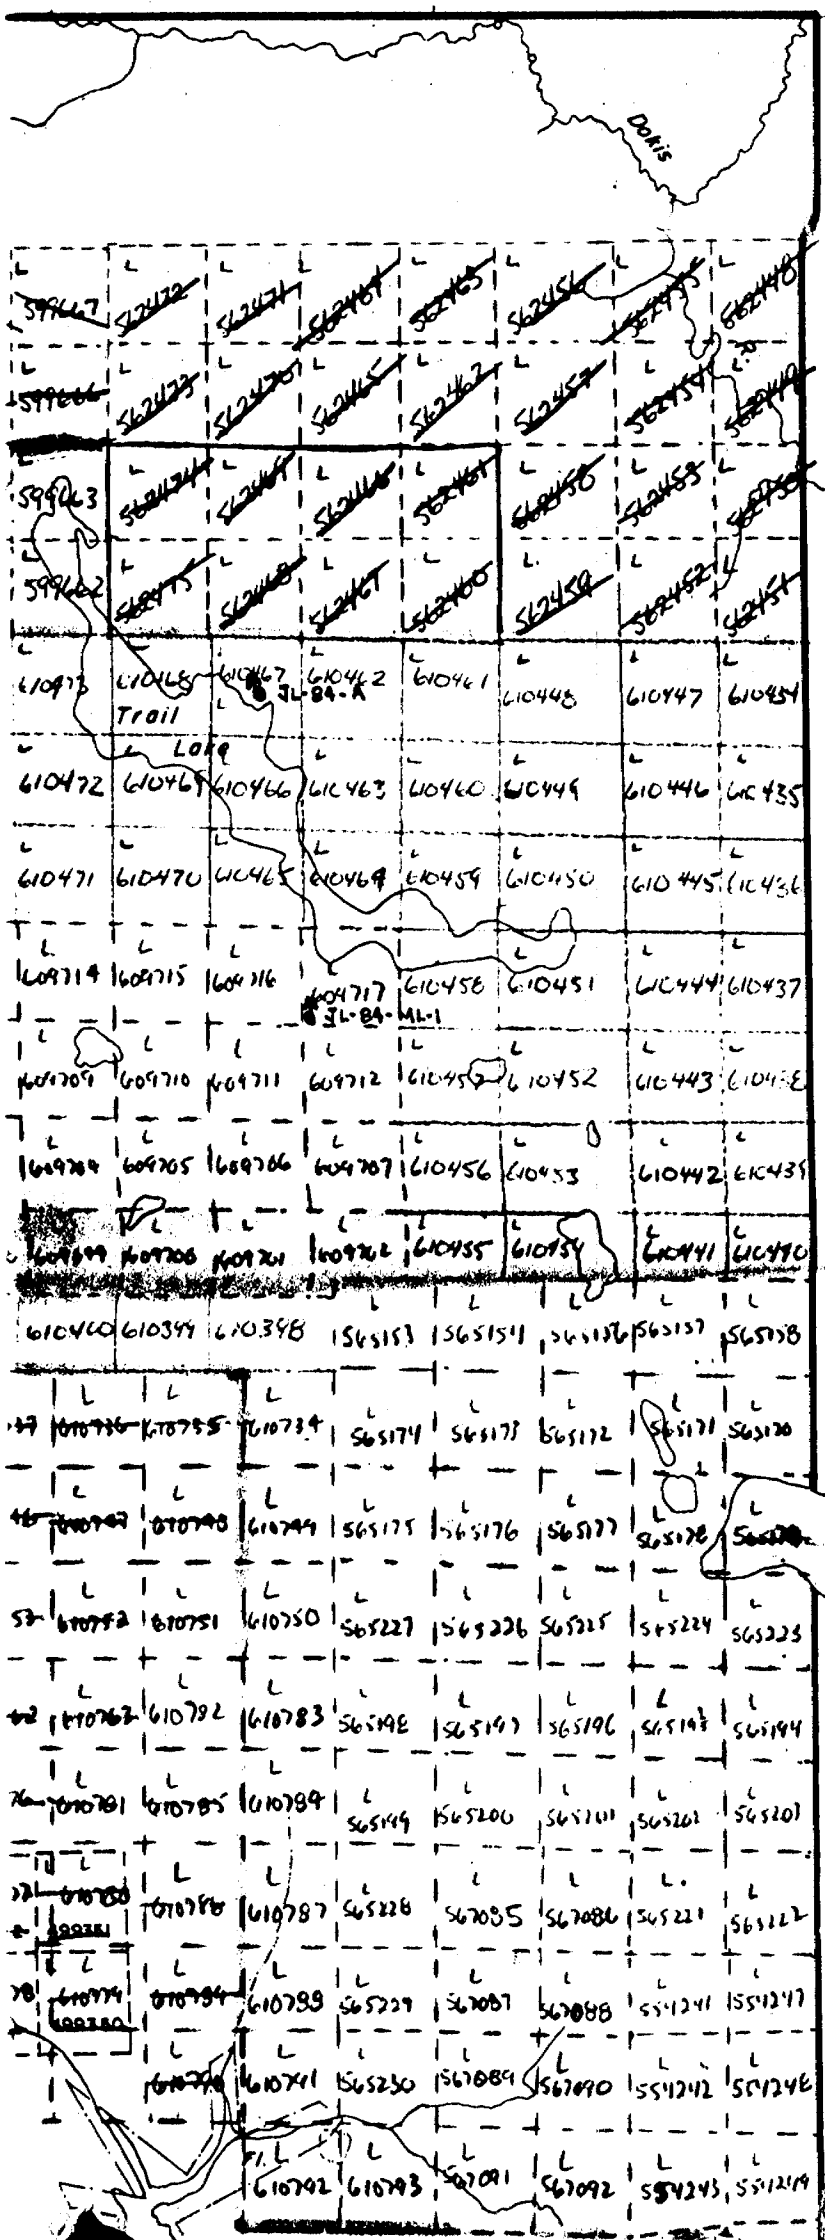 Dokis
L L L L L L L L
599667 562472 562471 562464 562463 562456 562455 562448
L L L L L L L
599666 562473 562470 562465 562462 562457 562454 562449
L L L L L L L
599663 562474 562469 562466 562461 562458 562453 562450
L L L L L L L
599662 562475 562468 562467 562460 562459 562452 562451
L L L L L L L
610473 610468 610467 610462 610461 610448 610447 610434
JL-84-A
Trail L
Lake
L L L L L L
610472 610469 610466 610463 610460 610449 610446 610435
L L L L L L L
610471 610470 610465 610464 610459 610450 610445 610436
L L L L L L L
609714 609715 609716 609717 610458 610451 610444 610437
JL-84-ML-1
L L L L L L L
609709 609710 609711 609712 610457 610452 610443 610438
L L L L L L L L
609704 609705 609706 609707 610456 610453 610442 610439
L L L L L L
609699 609700 609701 609702 610455 610454 610441 610440
L L L L L
610400 610399 610398 565153 565154 565156 565157 565158
L L L L L L L L
37 610736 610735 610734 565174 565173 565172 565171 565170
L L L L L L L L
610747 610748 610749 565175 565176 565177 565178 565179
L L L L L L L L
52 610752 610751 610750 565227 565226 565225 565224 565223
L L L L L L L L
610763 610782 610783 565198 565197 565196 565195 565194
L L L L L L L L
610781 610785 610784 565199 565200 565201 565202 565203
L L L L L L L L
610780 610786 610787 565228 567085 567086 565221 565222
L L L L L L L L
78 610779 610789 610788 565229 567087 567088 554241 554247
L L L L L L L
610790 610791 565230 567089 567090 554242 554248
L L L L L L
610792 610793 567091 567092 554243 554249